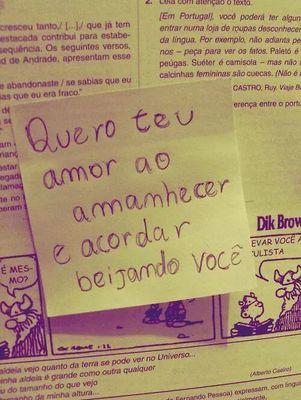 cresceu tanto,/ [...],/
destacada contribui para estabe-
sequência. Os seguintes versos,
d de Andrade, apresentam esse
abandonaste / se sabias que eu
as que eu era fraco."
Leia com atenção o texto.
[Em Portugal], você poderá ter algum
entrar numa loja de roupas desconhecen
da língua. Por exemplo, não adianta pe
nos – peça para ver os fatos. Paletó é
peúgas. Suéter é camisola – mas não
calcinhas femininas são cuecas. (Não é
CASTRO, Ruy. Viaje B
erença entre o port
Quero teu
amor ao
anmanhecer
e acordar
beijando você
Dik Brow
É MES-
MO?
EVAR VOCÊ A
ULISTA
aldeia vejo quanto da terra se pode ver no Universo...
minha aldeia é grande como outra qualquer
u do tamanho do que vejo
tamanho da minha altura...
(Alberto Caeiro)
Fernando Pessoa) expressam, com lingua